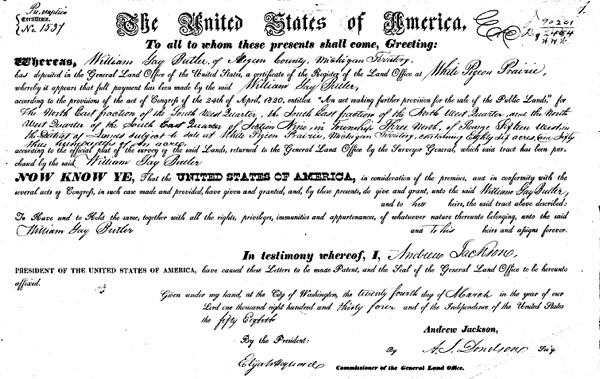 Pre emption
Certificate
No. 1537
The United States of America,
To all to whom these presents shall come, Greeting:
WHEREAS, William Gay Butler, of Allegan County, Michigan Territory,
has deposited in the General Land Office of the United States, a certificate of the Register of the Land Office at White Pigeon Prairie,
whereby it appears that full payment has been made by the said William Gay Butler,
according to the provisions of the act of Congress of the 24th of April, 1820, entitled "An act making further provision for the sale of the Public Lands," for
the North East fraction of the South West Quarter, the South East fraction of the North West Quarter, and the North
West Quarter of the South East Quarter of Section Nine, in Township Three North, of Range Fifteen West, in
the District of Lands subject to sale at White Pigeon Prairie, Michigan Territory, containing Eighty six acres, and Fifty
three hundredths of an acre,
according to the official plat of the survey of the said Lands, returned to the General Land Office by the Surveyor General, which said tract has been pur-
chased by the said William Gay Butler
NOW KNOW YE, That the UNITED STATES OF AMERICA, in consideration of the premises, and in conformity with the
several acts of Congress, in such case made and provided, have given and granted, and, by these presents, do give and grant, unto the said William Gay Butler,
and to his heirs, the said tract above described:
To Have and to Hold the same, together with all the rights, privileges, immunities and appurtenances, of whatsoever nature thereunto belonging, unto the said
William Gay Butler and to his heirs and assigns forever.
In testimony whereof, I, Andrew Jackson,
PRESIDENT OF THE UNITED STATES OF AMERICA, have caused these Letters to be made Patent, and the Seal of the General Land Office to be hereunto
affixed.
Given under my hand, at the City of Washington, the twenty fourth day of March in the year of our
Lord one thousand eight hundred and thirty four and of the Independence of the United States
the fifty Eighth
Andrew Jackson,
By the President:
By A. J. Donelson Sec'y
Elijah Hayward Commissioner of the General Land Office.